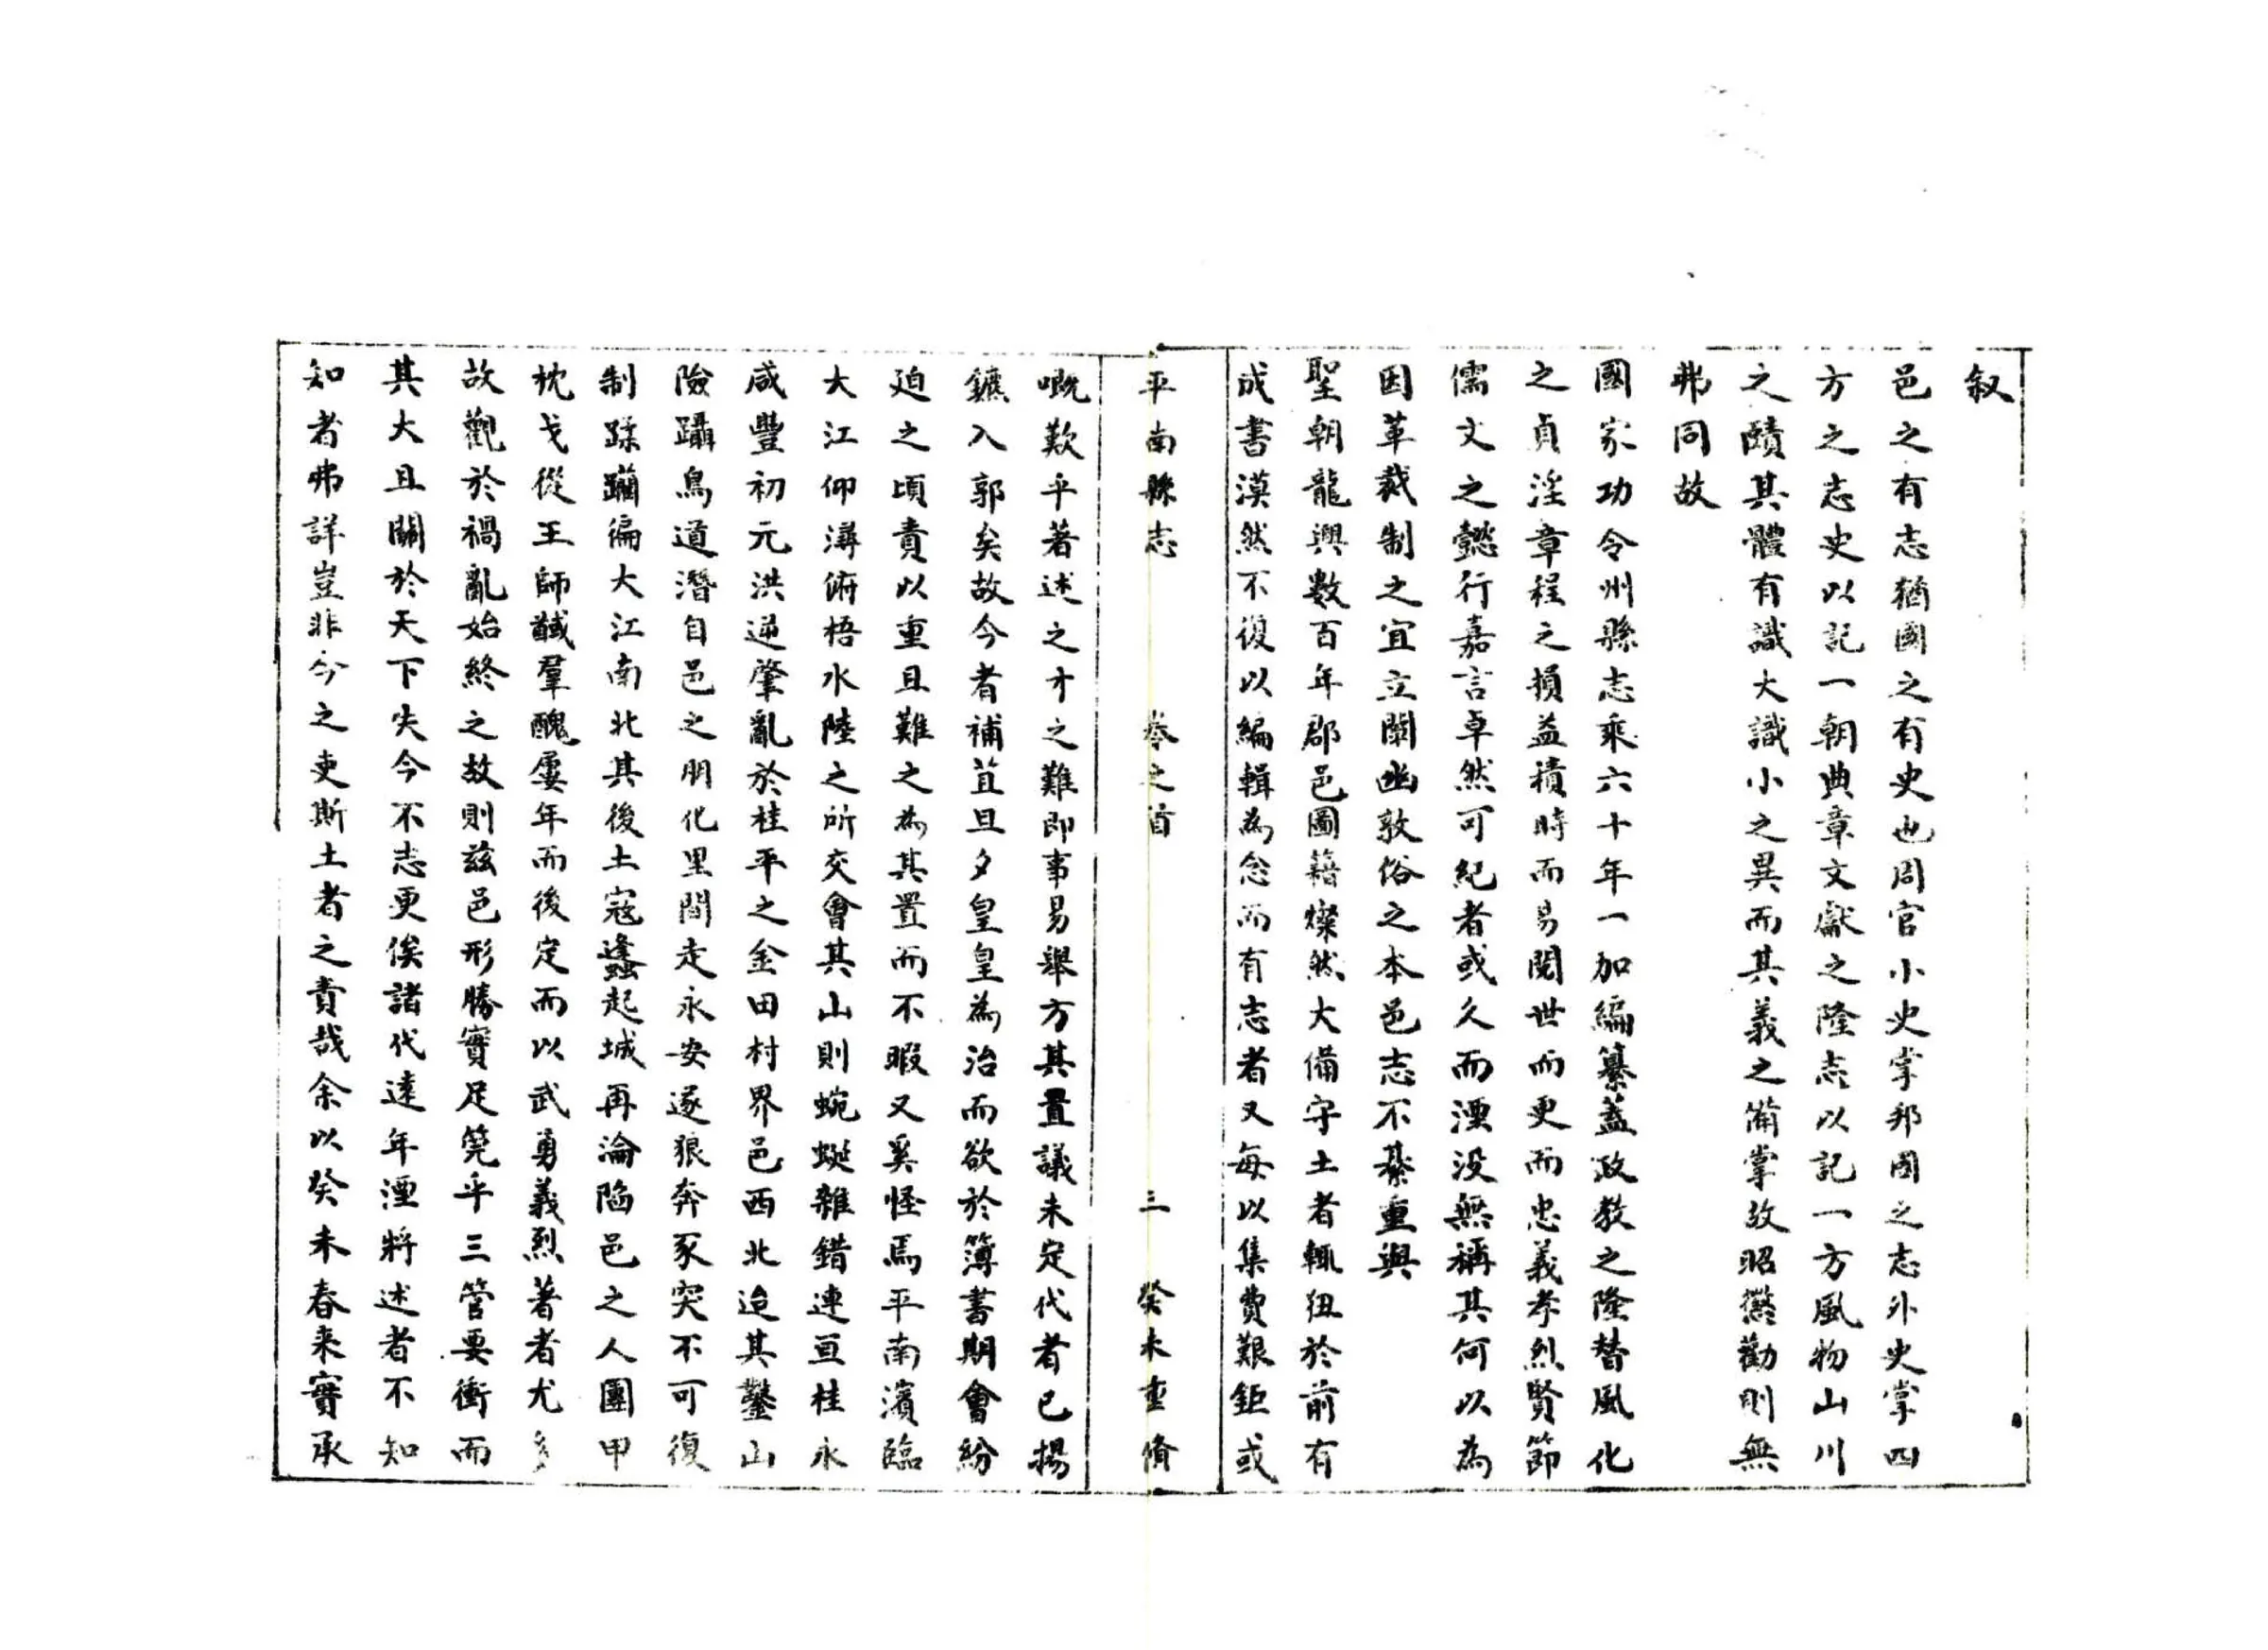 叙
邑之有志猶國之有史也周官小史掌邦國之志外史掌四
方之志史以記一朝典章文獻之隆志以記一方風物山川
之賾其體有識大識小之異而其義之備掌故昭懲勸則無
弗同故
國家功令州縣志乘六十年一加編纂蓋政教之隆替風化
之貞淫章程之損益積時而易閱世而更而忠義孝烈賢節
儒文之懿行嘉言卓然可紀者或久而湮没無稱其何以為
因革裁制之宜立闡幽敦俗之本邑志不綦重與
聖朝龍興數百年郡邑圖籍燦然大備守土者輒狃於前有
成書漠然不復以編輯為念而有志者又每以集費艱鉅或
平南縣志 卷之首 三 癸未重脩
嘅歎乎著述之才之難即事易舉方其置議未定代者已揚
鑣入郭矣故今者補苴旦夕皇皇為治而欲於簿書期會紛
廹之頃責以重且難之為其置而不暇又奚怪焉平南濱臨
大江仰潯俯梧水陸之所交會其山則蜿蜒雜錯連亘桂永
咸豐初元洪逆肇亂於桂平之金田村界邑西北迨其鑿山
險躡鳥道潛自邑之朋化里間走永安遂狼奔豕突不可復
制蹂躪徧大江南北其後土寇蠭起城再淪陷邑之人團甲
枕戈從王師馘羣醜屢年而後定而以武勇義烈著者尤多
故觀於禍亂始終之故則兹邑形勝實足筦乎三管要衝而
其大且關於天下矣今不志更俟諸代遠年湮將述者不知
知者弗詳豈非今之吏斯土者之責哉余以癸未春来實承